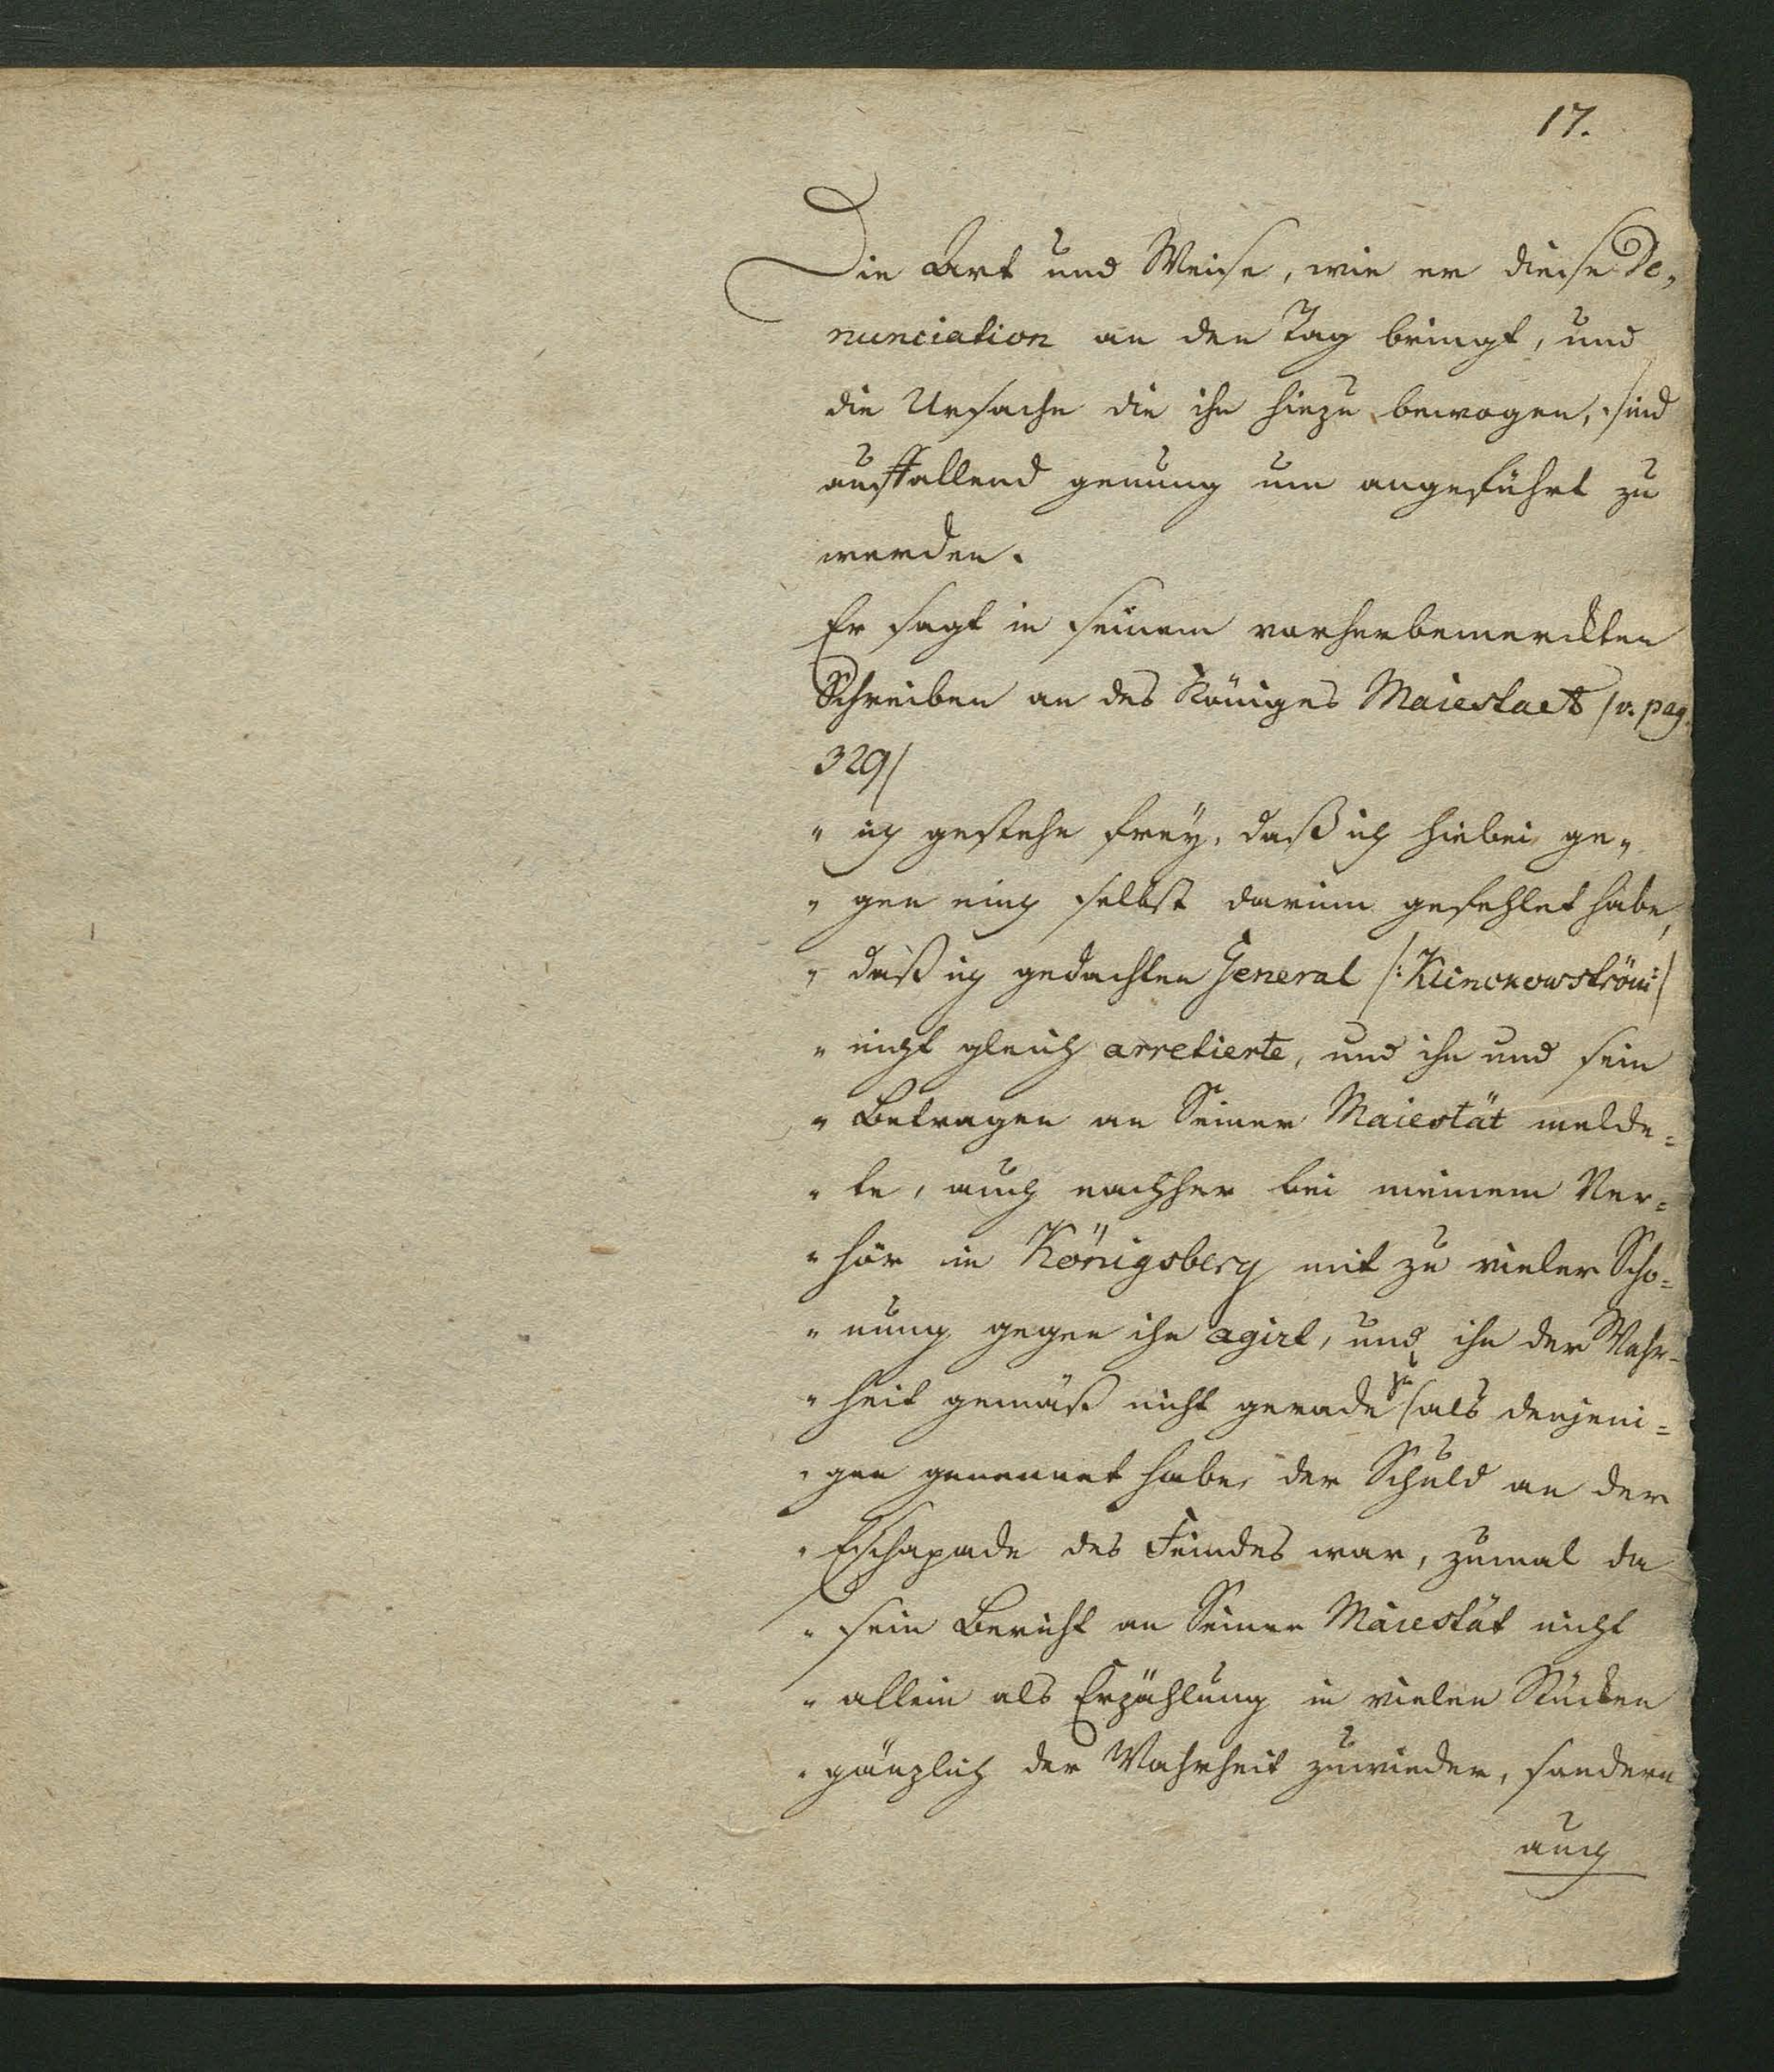 17.
Die Art und Weise, wie er diese De„
nunciation an den Tag bringt, und
die Ursache die ihn hiezu bewogen, sind
auffallend genung um angeführt zu
werden.
Er sagt in seinem vorherbemerckten
Schreiben an des Königes Maiestaet /v. pag.
329/
" ich gestehe frey, daß ich hiebei ge„
" gen mich selbst darinn gefehlet habe,
" daß ich gedachten General /: Klinckowström :/
" nicht gleich arretierte, und ihn und sein
" Betragen an Seiner Maiestät melde=
" te, auch nachher bei meinem Ver=
" hör in Königsberg mit zu vieler Scho=
" nung gegen ihn agirt, und ihn der Wahr=
" heit gemäß nicht gerade zu als denjeni=
" gen genennet habe, der Schuld an der
" Echapade des Feindes war, zumal da
" sein Bericht an Seiner Maiestät nicht
" allein als Erzählung in vielen Stücken
" gänzlich der Wahrheit zuwieder, sondern
auch